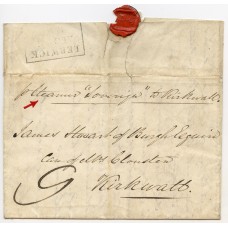 LERWICK
p Steamer "Sovereign" to Kirkwall.
James Stewart of Brugh Esquire
Care of Mr Clouston
Kirkwall